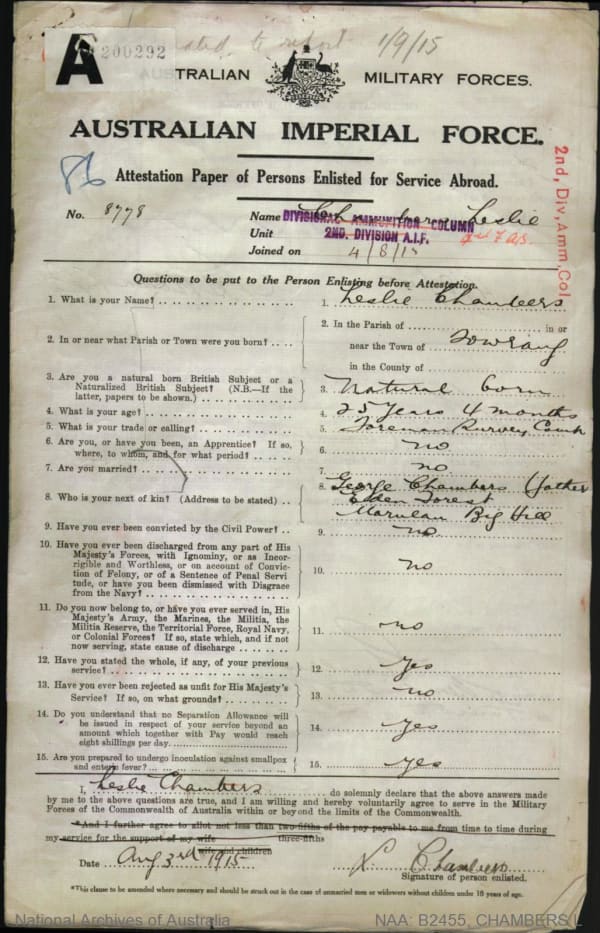 200292
to report 1/9/15
A
TRALIAN MILITARY FORCES.
AUSTRALIAN IMPERIAL FORCE.
2nd, Div, Amm, Col
86
Attestation Paper of Persons Enlisted for Service Abroad.
No. 8778 Name Chambers Leslie
DIVISIONAL AMMUNITION COLUMN
Unit 2ND. DIVISION A.I.F.
Joined on 4/8/15
Questions to be put to the Person Enlisting before Attestation.
1. What is your Name? 1. Leslie Chambers
2. In or near what Parish or Town were you born? 2. In the Parish of in or
near the Town of Towrang
in the County of
3. Are you a natural born British Subject or a
Naturalized British Subject? (N.B.—If the
latter, papers to be shown.) 3. Natural born
4. What is your age? 4. 25 years 4 months
5. What is your trade or calling? 5. Foreman Survey Camp
6. Are you, or have you been, an Apprentice? If so,
where, to whom, and for what period? 6. no
7. Are you married? 7. no
8. Who is your next of kin? (Address to be stated) 8. George Chambers (father
Forest
Marulan Big Hill
9. Have you ever been convicted by the Civil Power? 9. no
10. Have you ever been discharged from any part of His
Majesty's Forces, with Ignominy, or as Incor-
rigible and Worthless, or on account of Convic-
tion of Felony, or of a Sentence of Penal Servi
tude, or have you been dismissed with Disgrace
from the Navy? 10. no
11. Do you now belong to, or have you ever served in, His
Majesty's Army, the Marines, the Militia, the
Militia Reserve, the Territorial Force, Royal Navy,
or Colonial Forces? If so, state which, and if not
now serving, state cause of discharge 11. no
12. Have you stated the whole, if any, of your previous
service? 12. yes
13. Have you ever been rejected as unfit for His Majesty's
Service? If so, on what grounds? 13. no
14. Do you understand that no Separation Allowance will
be issued in respect of your service beyond an
amount which together with Pay would reach
eight shillings per day. 14. yes
15. Are you prepared to undergo inoculation against smallpox
and enteric fever? 15. yes
I, Leslie Chambers do solemnly declare that the above answers made
by me to the above questions are true, and I am willing and hereby voluntarily agree to serve in the Military
Forces of the Commonwealth of Australia within or beyond the limits of the Commonwealth.
*And I further agree to allot not less than two-fifths of the pay payable to me from time to time during
my service for the support of my wife three-fifths
wife and children
Date Aug 3rd 1915 L Chambers
Signature of person enlisted.
*This clause to be amended where necessary and should be struck out in the case of unmarried men or widowers without children under 18 years of age.
National Archives of Australia NAA: B2455, CHAMBERS L